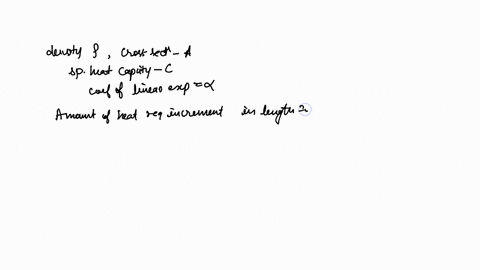 density ρ, cross secⁿ - A
sp. heat capacity - C
coef of linear exp = α
Amount of heat req increment in length